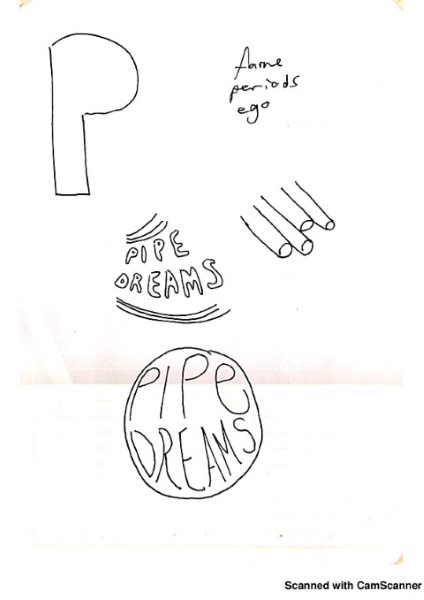 P
periods
ego
PIPE
DREAMS
PIPE
DREAMS
Scanned with CamScanner